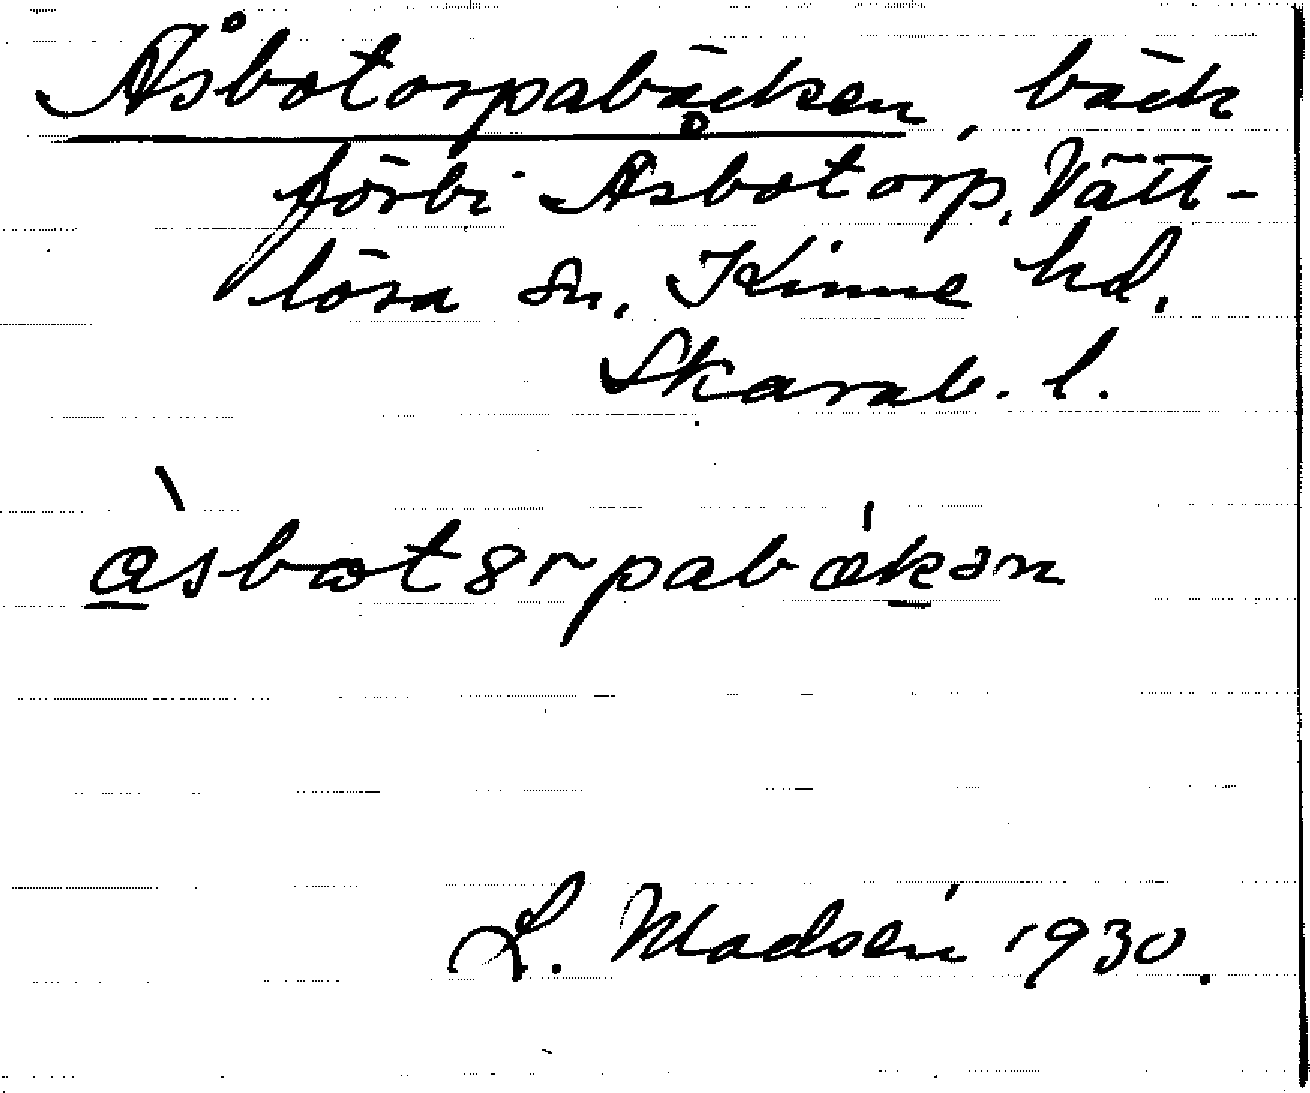 Åsbotorpabäcken, bäck
förbi Åsbotorp, Vätt-
lösa sn. Kinne hd.
Skarab. l.
àsbotorpabǽkən
L. Madsén 1930.